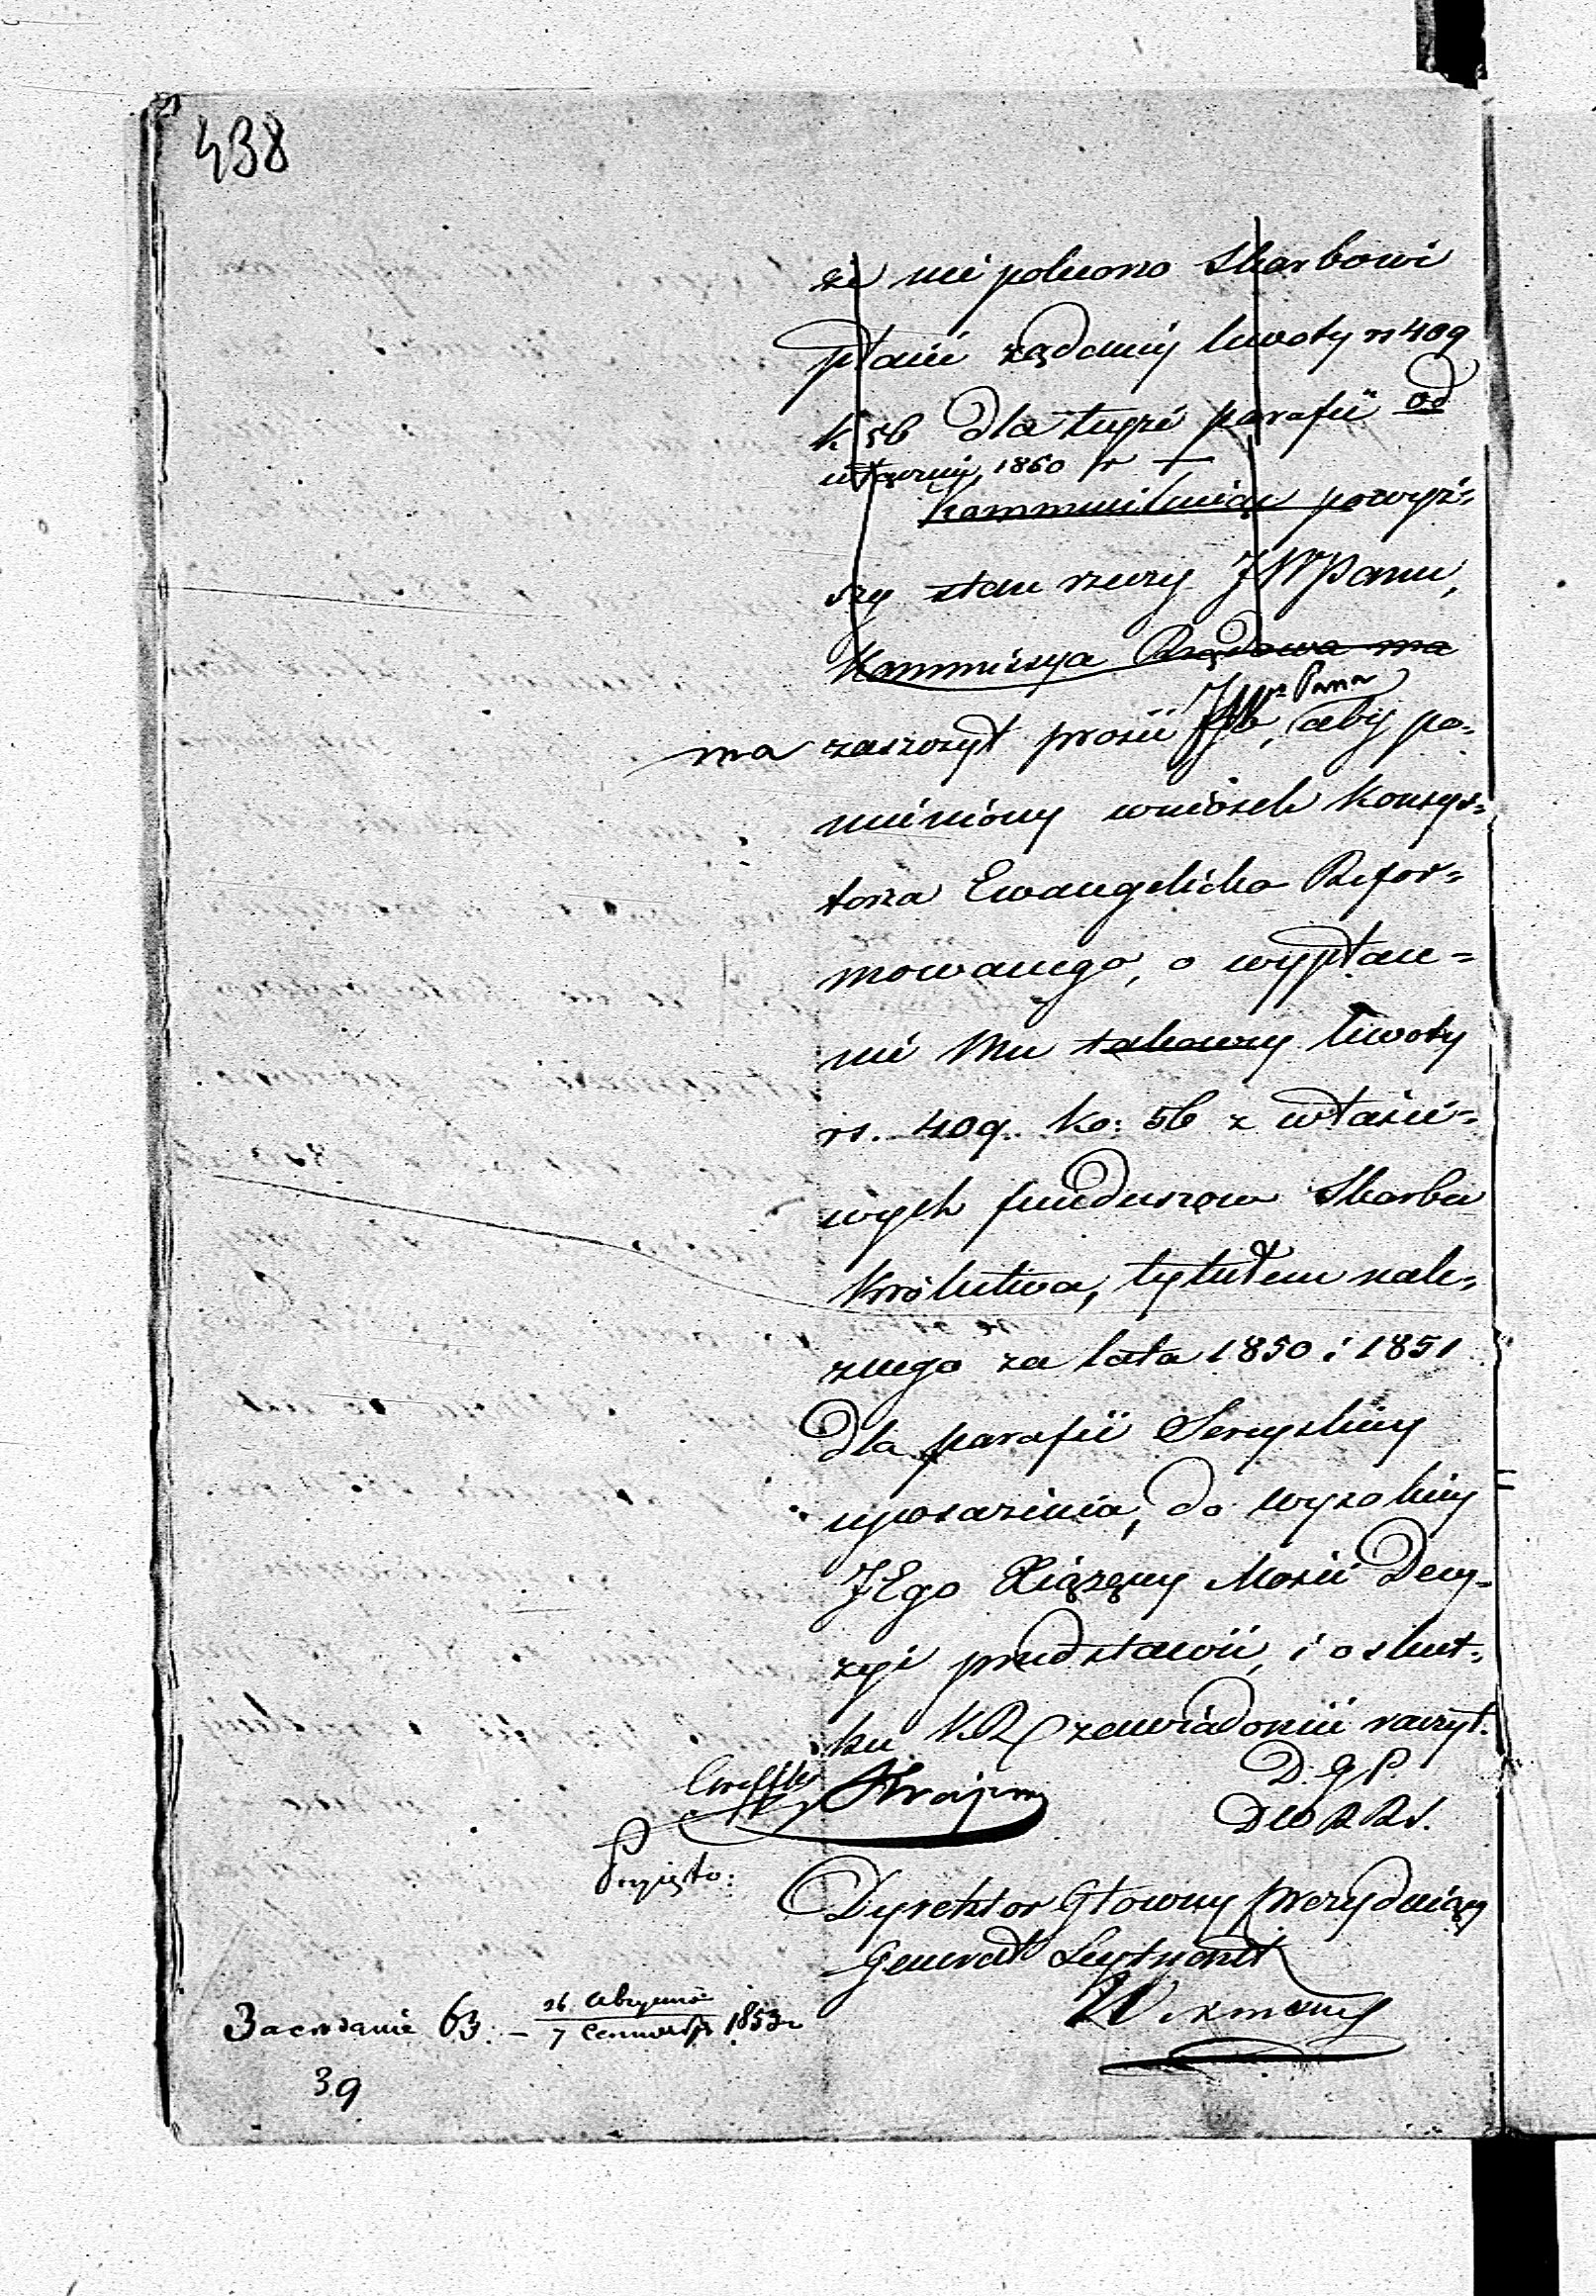 438
że nie polecono Skarbowi
płacić żądanej kwoty rs 409
k 56 dla tejże parafii od
włącznie 1860 r
Kommunikując powyż=
szy stan rzeczy JWPanu,
Kommissya Rządowa ma
JWo Pana
ma zaszczyt prosić aby po=
mieniony wniosek Konsys=
torza Ewangelicko Refor=
mowanego, o wypłace=
nie Mu takowey kwoty
rs. 409. ko: 56 z właści=
wych funduszów Skarbu
Królestwa, tytułem należ=
znego za lata 1850 i 1851
dla parafii Sereyskiey
uposażenia, do wysokiey
JEgo Xiążęcey Mości Decy=
zyi przedstawić, i o skut=
ku KR zawiadomić raczył.
D. G. P.
D W R R S.
Przyjęto:
Dyrektor Główny Prezydujący
Generał Leytnant
Wikiński
63. 26 7 Czerwca 1853 r
39